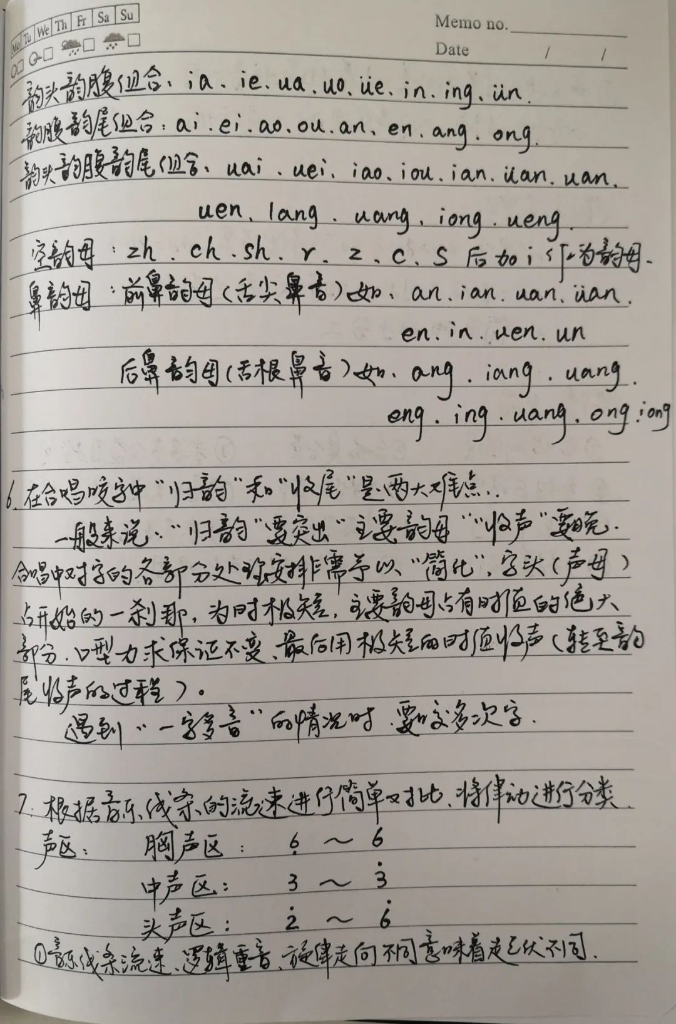 Mo Tu We Th Fr Sa Su
Memo no.
Date / /
韵头韵腹组合：ia、ie、ua、uo、üe、in、ing、ün.
韵腹韵尾组合：ai、ei、ao、ou、an、en、ang、ong.
韵头韵腹韵尾组合、uai、uei、iao、iou、ian、üan、uan、
uen、lang、uang、iong、ueng.
空韵母：zh、ch、sh、r、z、c、s 后加i 作为韵母.
鼻韵母：前鼻韵母（舌尖鼻音）如、an、ian、uan、üan、
en、in、uen、un
后鼻韵母（舌根鼻音）如、ang、iang、uang、
eng、ing、uang、ong、iong
6、在合唱咬字中“归韵”和“收尾”是两大难点..
一般来说：“归韵”要突出“主要韵母”“收声”要晚.
合唱中对字的各部分处理安排需予以“简化”，字头（声母）
占开始的一刹那，为时极短，主要韵母占有时值的绝大
部分，口型力求保证不变、最后用极短的时值收声（转至韵
尾收声的过程）。
遇到“一字多音”的情况时，要咬多次字.
7、根据音乐线条的流速进行简单对比、将律动进行分类.
声区： 胸声区： 6̣ ～ 6
中声区： 3 ～ 3̇
头声区： 2̇ ～ 6̇
①音乐线条流速、逻辑重音、旋律走向不同意味着起伏不同.